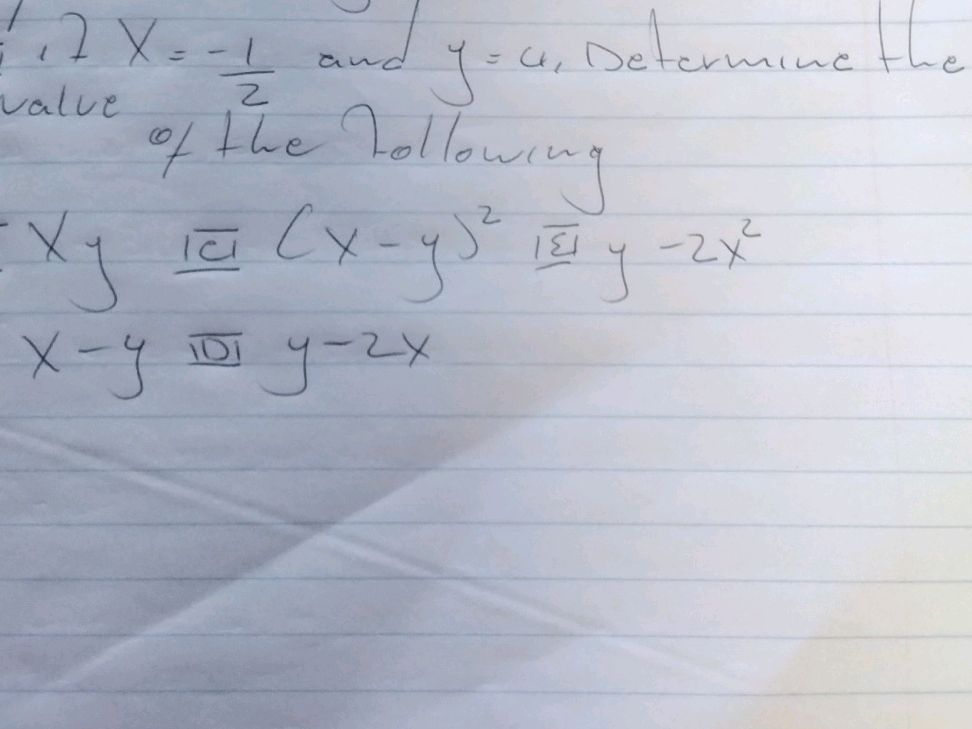 if X = -1/2 and y = 4, Determine the
value
of the following
Xy [C] (x-y)² [E] y -2x²
x-y [D] y-2x